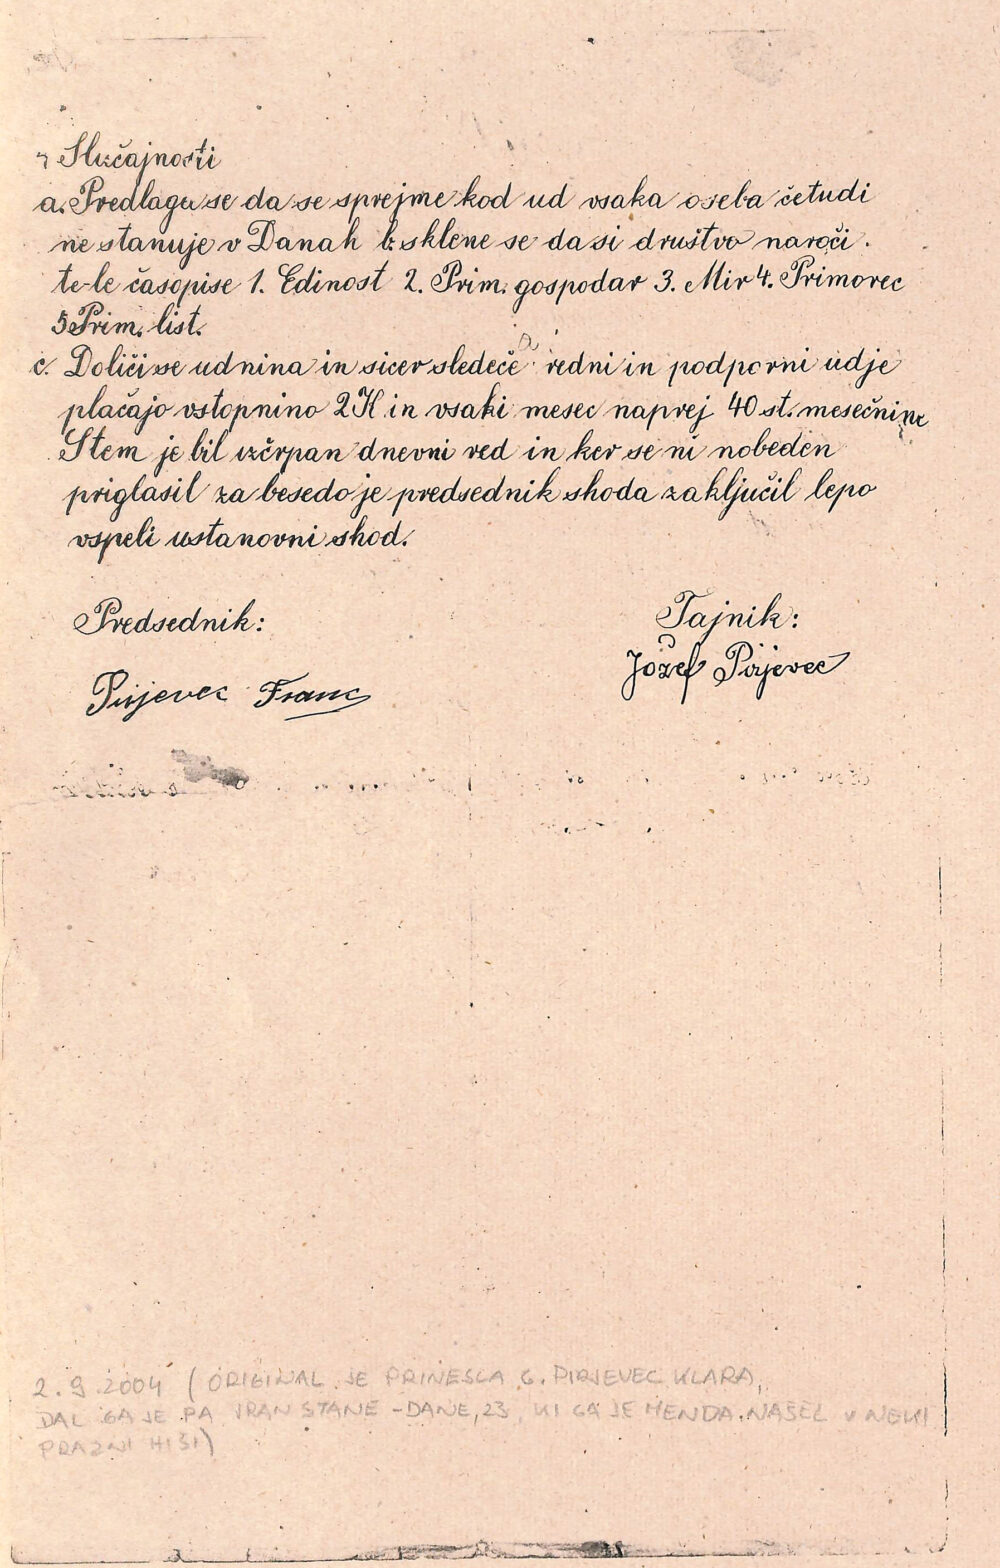 7 Slučajnosti
a. Predlaga se da se sprejme kod ud vsaka oseba četudi
ne stanuje v Danah b. sklene se da si društvo naroči.
te-le časopise 1. Edinost 2. Prim. gospodar 3. Mir 4. Primorec
5 Prim. list.
c. Doliči se udnina in sicer sledeče redni in podporni udje
plačajo vstopnino 2K in vsaki mesec naprej 40 st. mesečnine
Stem je bil izčrpan dnevni red in ker se ni nobeden
priglasil za besedo je predsednik shoda zaključil lepo
vspeli ustanovni shod.
Predsednik:
Tajnik:
Pirjevec Franc
Jožef Pirjevec
2.9.2004 (ORIGINAL JE PRINESLA G. PIRJEVEC KLARA,
DAL GA JE PA VRAN STANE - DANE, 23, KI GA JE MENDA NAŠEL V NEKI
PRAZNI HIŠI)